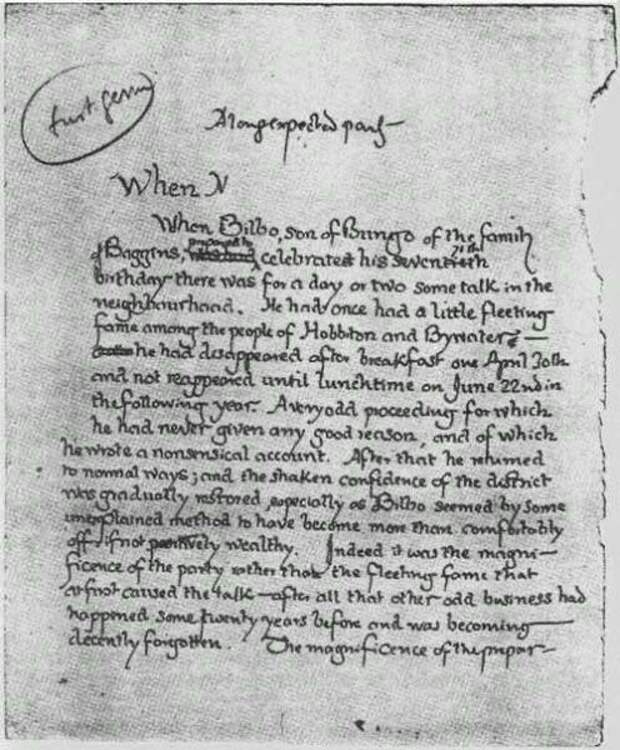 first germ
A long expected party
When
When Bilbo, son of Bungo of the family
of Baggins, prepared to celebrate his seventieth
birthday there was for a day or two some talk in the
neighbourhood. He had once had a little fleeting
fame among the people of Hobbiton and Bywater —
he had disappeared after breakfast one April 30th
and not reappeared until lunchtime on June 22nd in
the following year. A very odd proceeding for which
he had never given any good reason, and of which
he wrote a nonsensical account. After that he returned
to normal ways; and the shaken confidence of the district
was gradually restored, especially as Bilbo seemed by some
unexplained method to have become more than comfortably
off, if not positively wealthy. Indeed it was the magni-
ficence of the party rather than the fleeting fame that
at first caused the talk — after all that other odd business had
happened some twenty years before and was becoming
decently forgotten. The magnificence of the prepar-